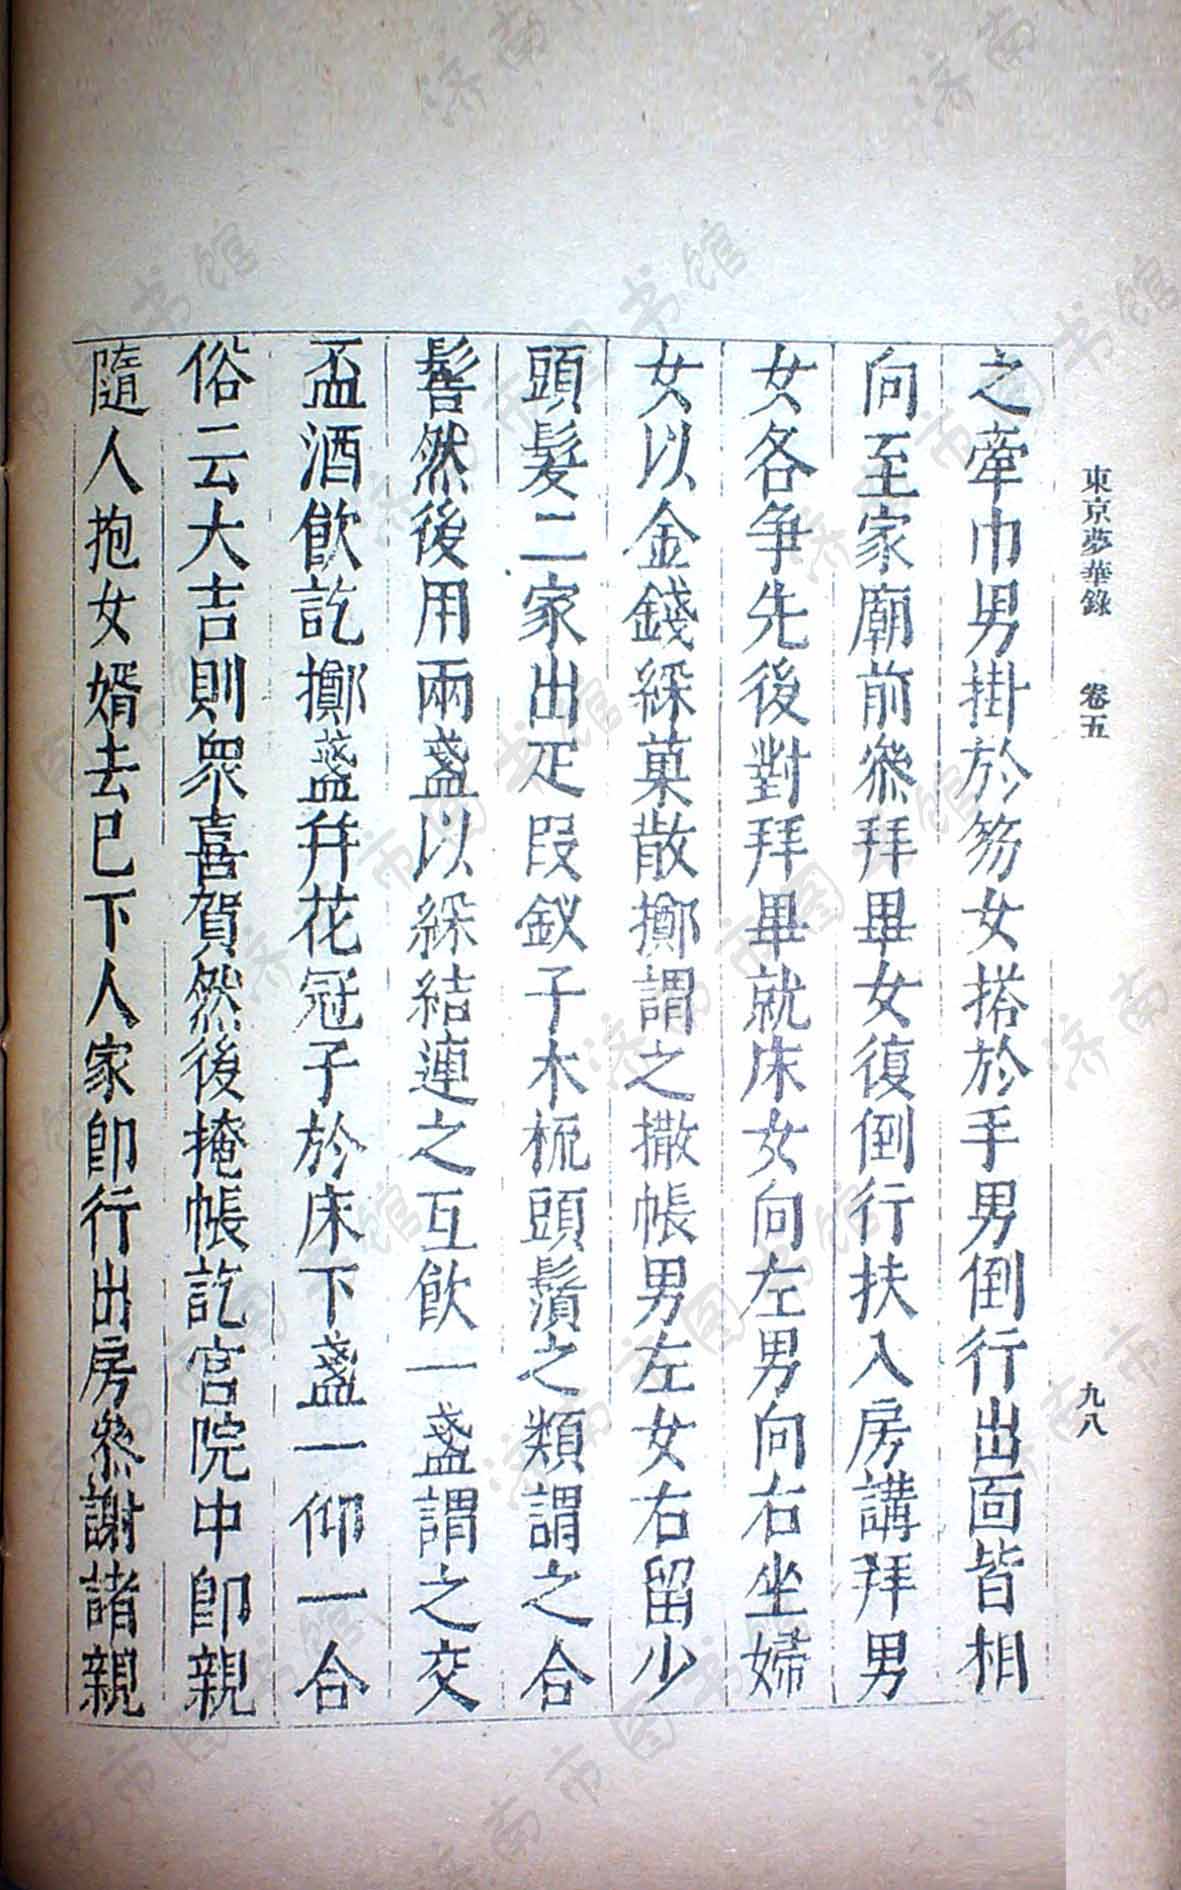 東京夢華錄 卷五 九八
之牽巾男掛於笏女搭於手男倒行出面皆相
向至家廟前叅拜畢女復倒行扶入房講拜男
女各爭先後對拜畢就床女向左男向右坐婦
女以金錢綵菓散擲謂之撒帳男左女右留少
頭髮二家出疋段釵子木梳頭鬚之類謂之合
髻然後用兩盞以綵結連之互飲一盞謂之交
盃酒飲訖擲盞幷花冠子於床下盞一仰一合
俗云大吉則衆喜賀然後掩帳訖宮院中卽親
隨人抱女婿去已下人家卽行出房叅謝諸親
济南市图书馆